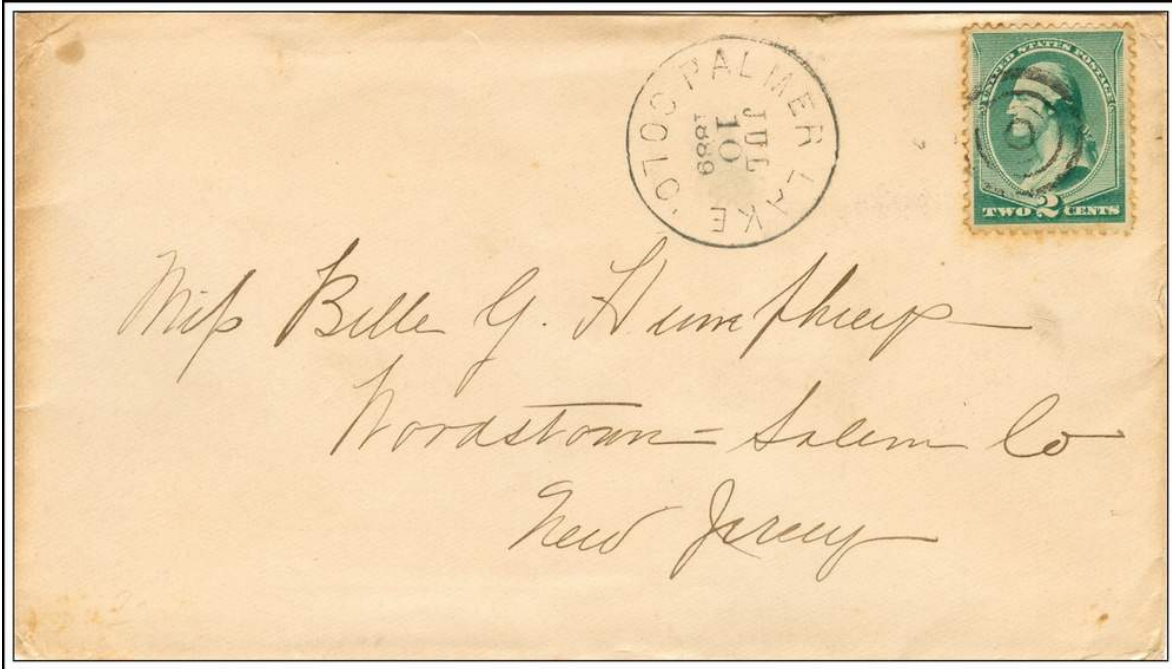 PALMER LAKE COLO.
JUL
10
1889
UNITED STATES POSTAGE
TWO 2 CENTS
Miss Belle G. Humphreys
Woodstown - Salem Co
New Jersey